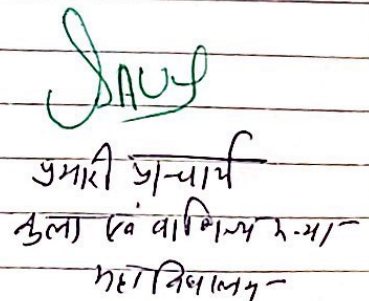 प्रभारी प्राचार्य
कला एवं वाणिज्य कन्या
महाविद्यालय